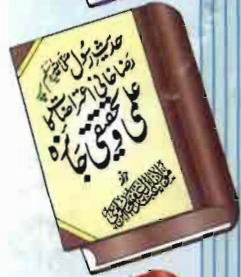 حدیث رسول صلی اللہ علیہ وسلم پر
رضاخانی اعتراضات کا
علمی و تحقیقی جائزہ